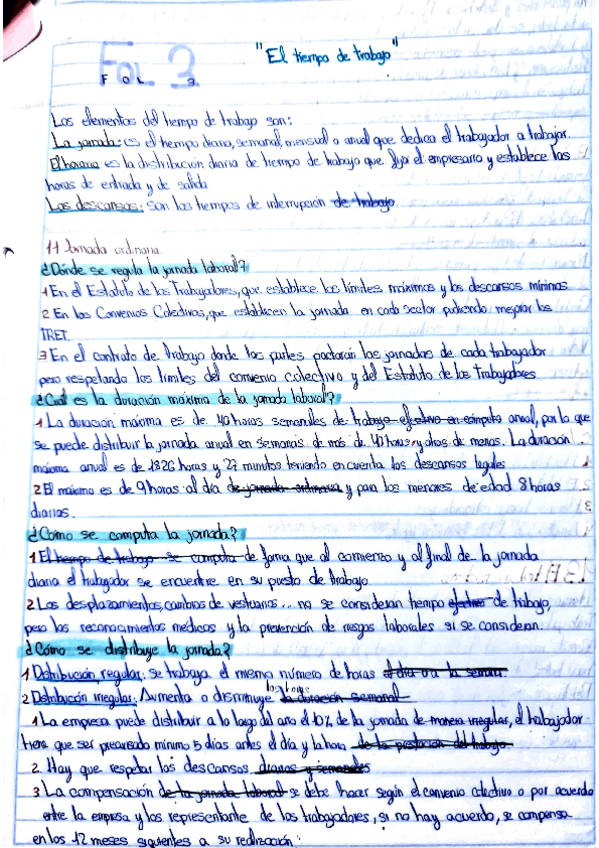 "El tiempo de trabajo"
FOL 3.
F O L 3
Los elementos del tiempo de trabajo son:
La jornada: es el tiempo diario, semanal, mensual o anual que dedica el trabajador a trabajar.
El horario es la distribución diaria de tiempo de trabajo que fija el empresario y establece las
horas de entrada y de salida
Los descansos: son los tiempos de interrupción de trabajo
1.1 Jornada ordinaria
¿Dónde se regula la jornada laboral?
1 En el Estatuto de los Trabajadores, que establece los límites máximos y los descansos mínimos
2 En los Convenios Colectivos, que establecen la jornada en cada sector pudiendo mejorar los
TRET.
3 En el contrato de trabajo donde las partes pactarán las jornadas de cada trabajador
pero respetando los límites del convenio colectivo y del Estatuto de los Trabajadores
¿Cuál es la duración máxima de la jornada laboral?
1 La duración máxima es de 40 horas semanales de trabajo efectivo en cómputo anual, por lo que
se puede distribuir la jornada anual en semanas de más de 40 horas y otras de menos. La duración
máxima anual es de 1826 horas y 27 minutos teniendo en cuenta los descansos legales
2 El máximo es de 9 horas al día de jornada ordinaria y para los menores de edad 8 horas
diarias.
¿Cómo se computa la jornada?
1 El tiempo de trabajo se computa de forma que al comienzo y al final de la jornada
diaria el trabajador se encuentre en su puesto de trabajo
2 Los desplazamientos, cambios de vestuarios... no se consideran tiempo efectivo de trabajo,
pero los reconocimientos médicos y la prevención de riesgos laborales si se consideran.
¿Cómo se distribuye la jornada?
1 Distribución regular: se trabaja el mismo número de horas al día o a la semana.
2 Distribución irregular: Aumenta o disminuye las horas la duración semanal
1 La empresa puede distribuir a lo largo del año el 10% de la jornada de manera irregular, el trabajador
tiene que ser preavisado mínimo 5 días antes el día y la hora de la prestación del trabajo
2. Hay que respetar los descansos diarios y semanales
3 La compensación de la jornada laboral se debe hacer según el convenio colectivo o por acuerdo
entre la empresa y los representante de los trabajadores, si no hay acuerdo, se compensa
en los 12 meses siguientes a su realización: